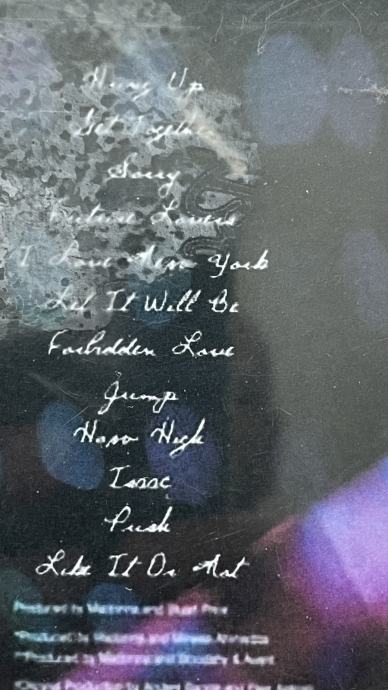 Hung Up
Get Together
Sorry
Future Lovers
I Love New York
Let It Will Be
Forbidden Love
Jump
How High
Isaac
Push
Like It Or Not
Produced by Madonna and Stuart Price
*Produced by Madonna and Mirwais Ahmadzai
**Produced by Madonna and Bloodshy & Avant